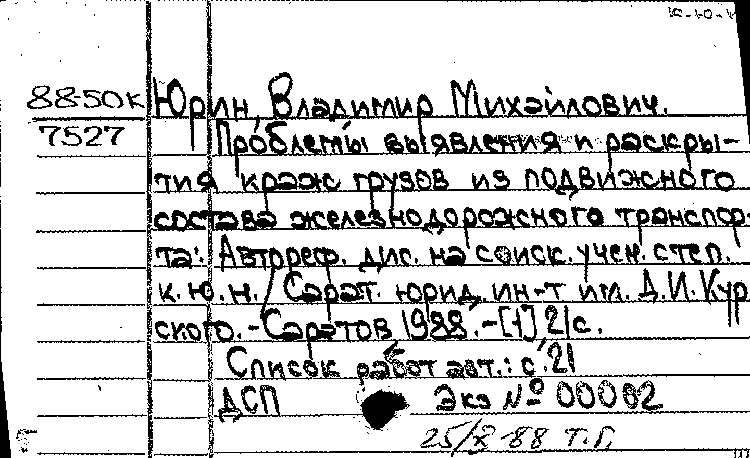 88-50к Юрин, Владимир Михайлович.
7527 Проблемы выявления и раскры-
тия краж грузов из подвижного
состава железнодорожного транспор-
та: Автореф. дис. на соиск. учен. степ.
к.ю.н. / Сарат. юрид. ин-т им. Д.И. Кур
ского. - Саратов 1988. - [1] 21с.
Список работ авт.: с. 21
ДСП Экз № 00002
25/X-88 т.г.